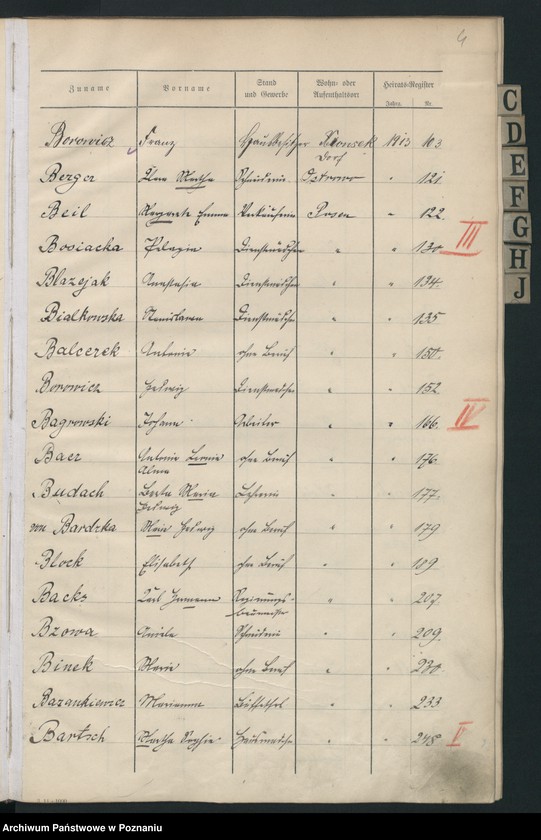 4
Zuname Vorname Stand und Gewerbe Wohn- oder Aufenthaltsort Heirats-Register
Jahrg. Nr.
Borowicz Franz Hausbesitzer Dorf 1913 103.
Berger Martha Schneiderin Ostrowo " 121.
Beil Margarete Emma Verkäuferin Posen " 122.
III
Bosiacka Pelagia Dienstmädchen " " 130
Blazejak Anastasia Dienstmädchen " " 134.
Bialkowska Stanislawa Dienstmädchen " " 135
Balcerek Antonie ohne Beruf " " 150.
Borowicz Hedwig Dienstmädchen " " 152.
Bagrowski Johann Arbeiter " " 166.
IV
Baer Antonie ohne Beruf " " 176.
Budach Berta Maria Hedwig Lehrerin " " 177.
von Bardzka Marie Hedwig ohne Beruf " " 179
Block Elisabeth ohne Beruf " " 109
Backs Karl Hermann Regierungs- baumeister " " 207.
Bzowa Aniela Schneiderin " " 209.
Binek Marie ohne Beruf " " 230.
Bazankiewicz Marianna " " 233
Bartsch Martha Sophie " " 248
V
C
D
E
F
G
H
J
Archiwum Państwowe w Poznaniu